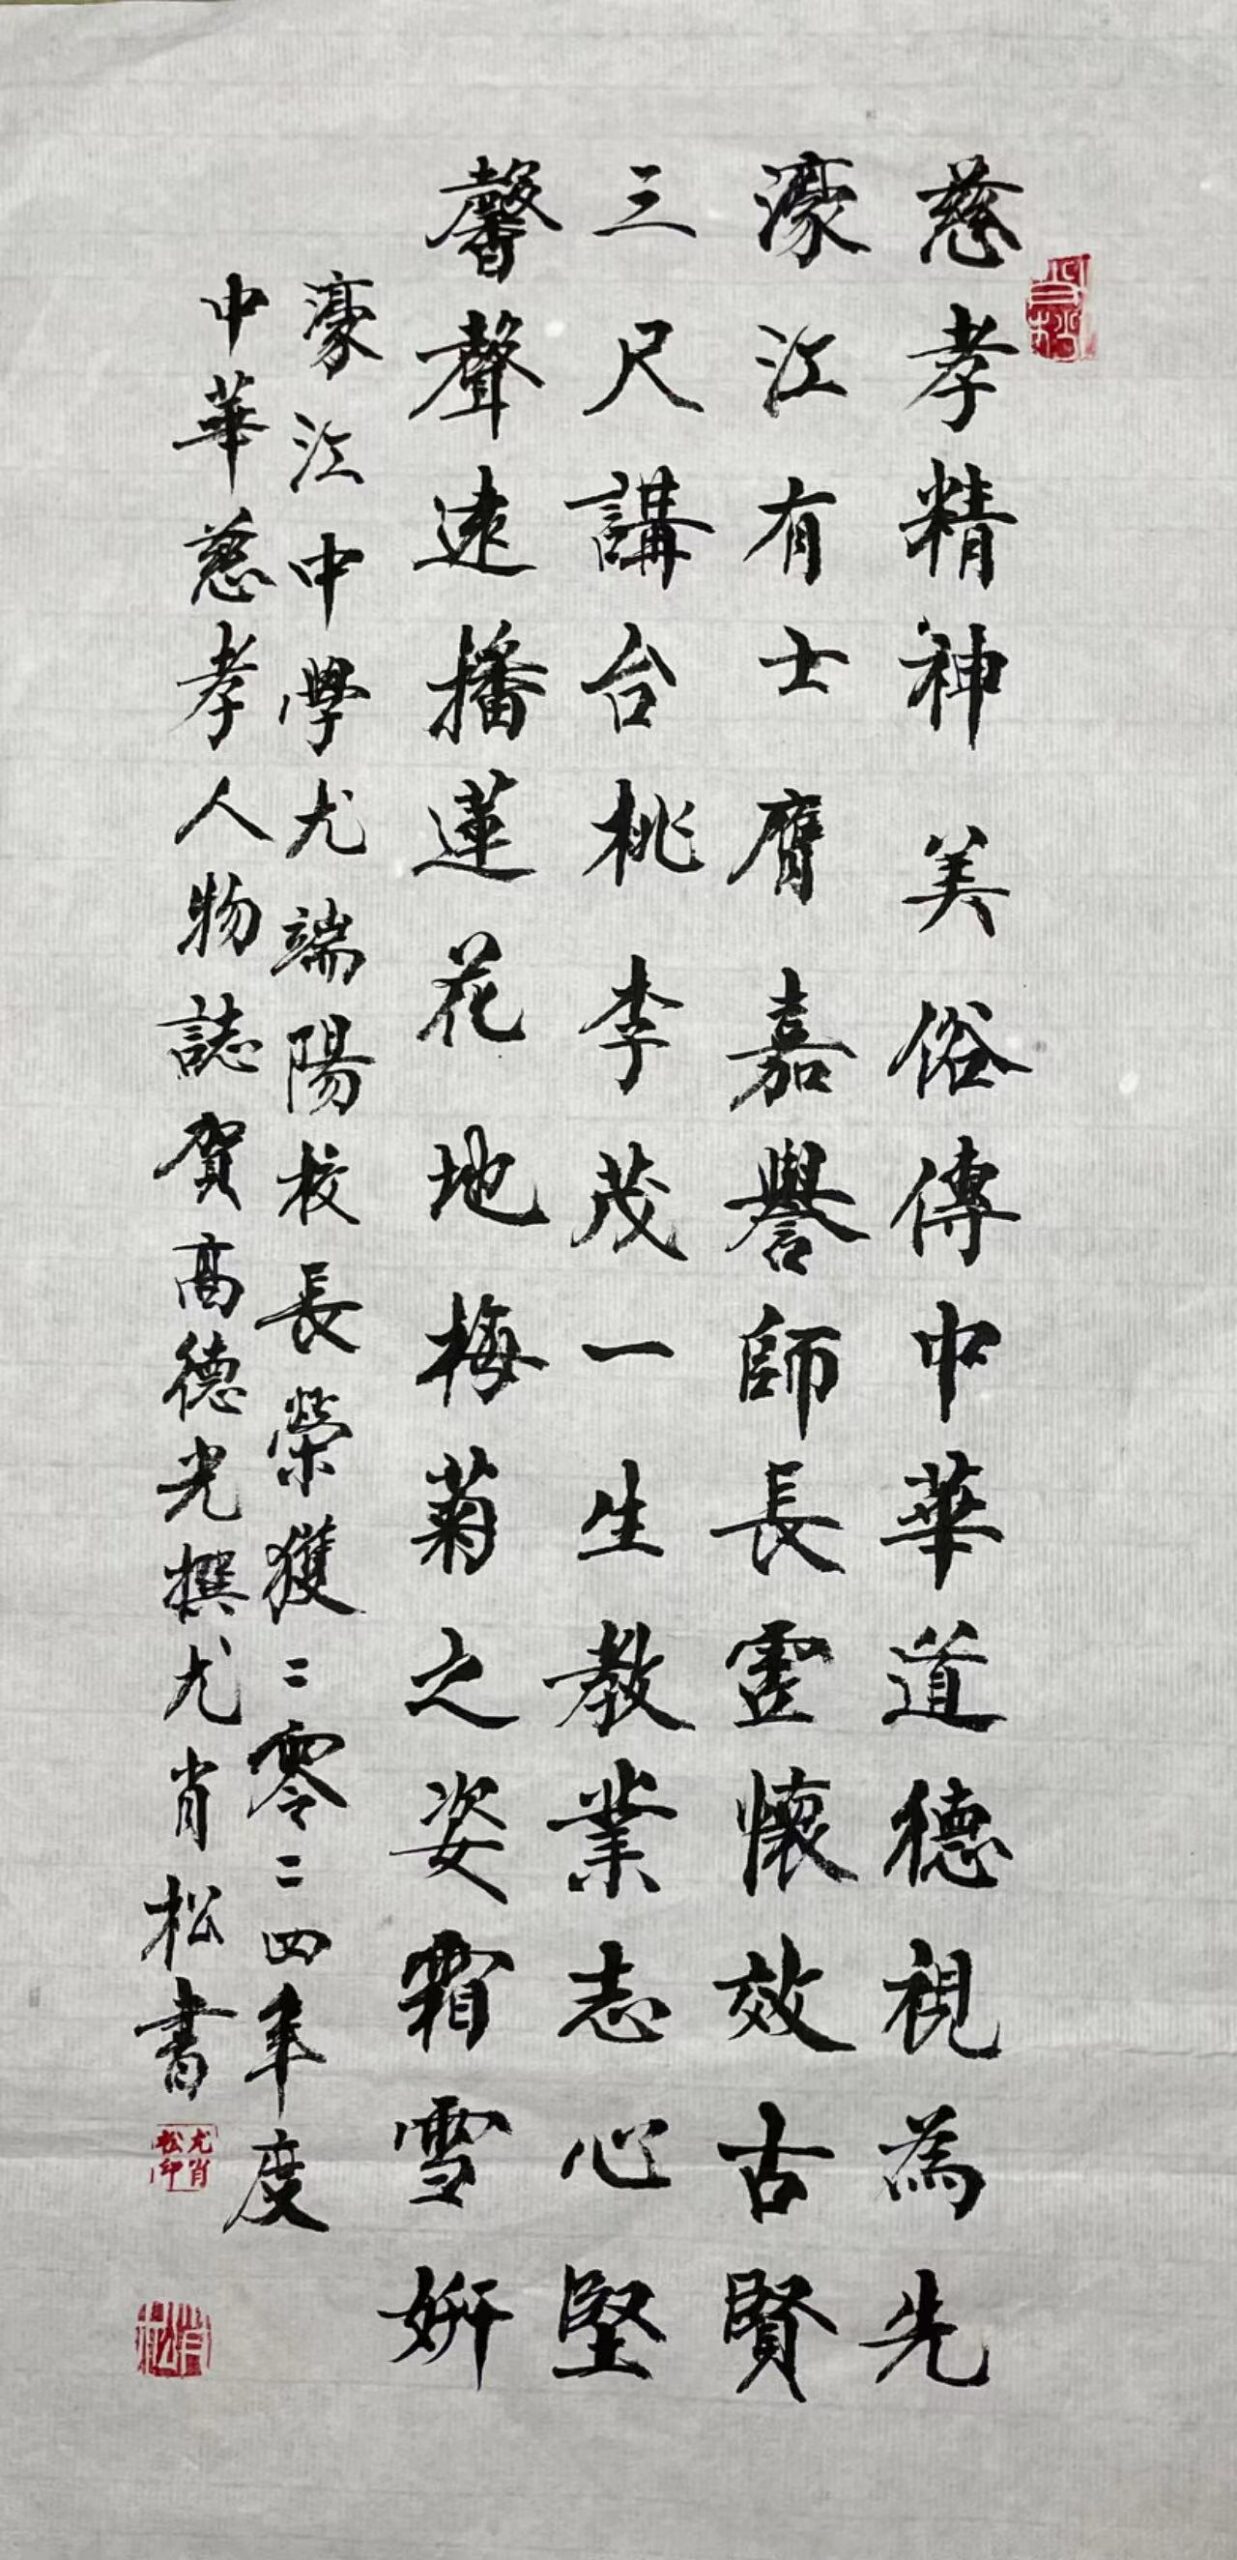 慈孝精神美俗傳中華道德視為先
濠江有士膺嘉譽師長靈懷效古賢
三尺講台桃李茂一生教業志心堅
馨聲遠播蓮花地梅菊之姿霜雪妍
濠江中學尤端陽校長榮獲二零二四年度
中華慈孝人物誌賀高德光撰尤肖松書
尤肖松印
肖松